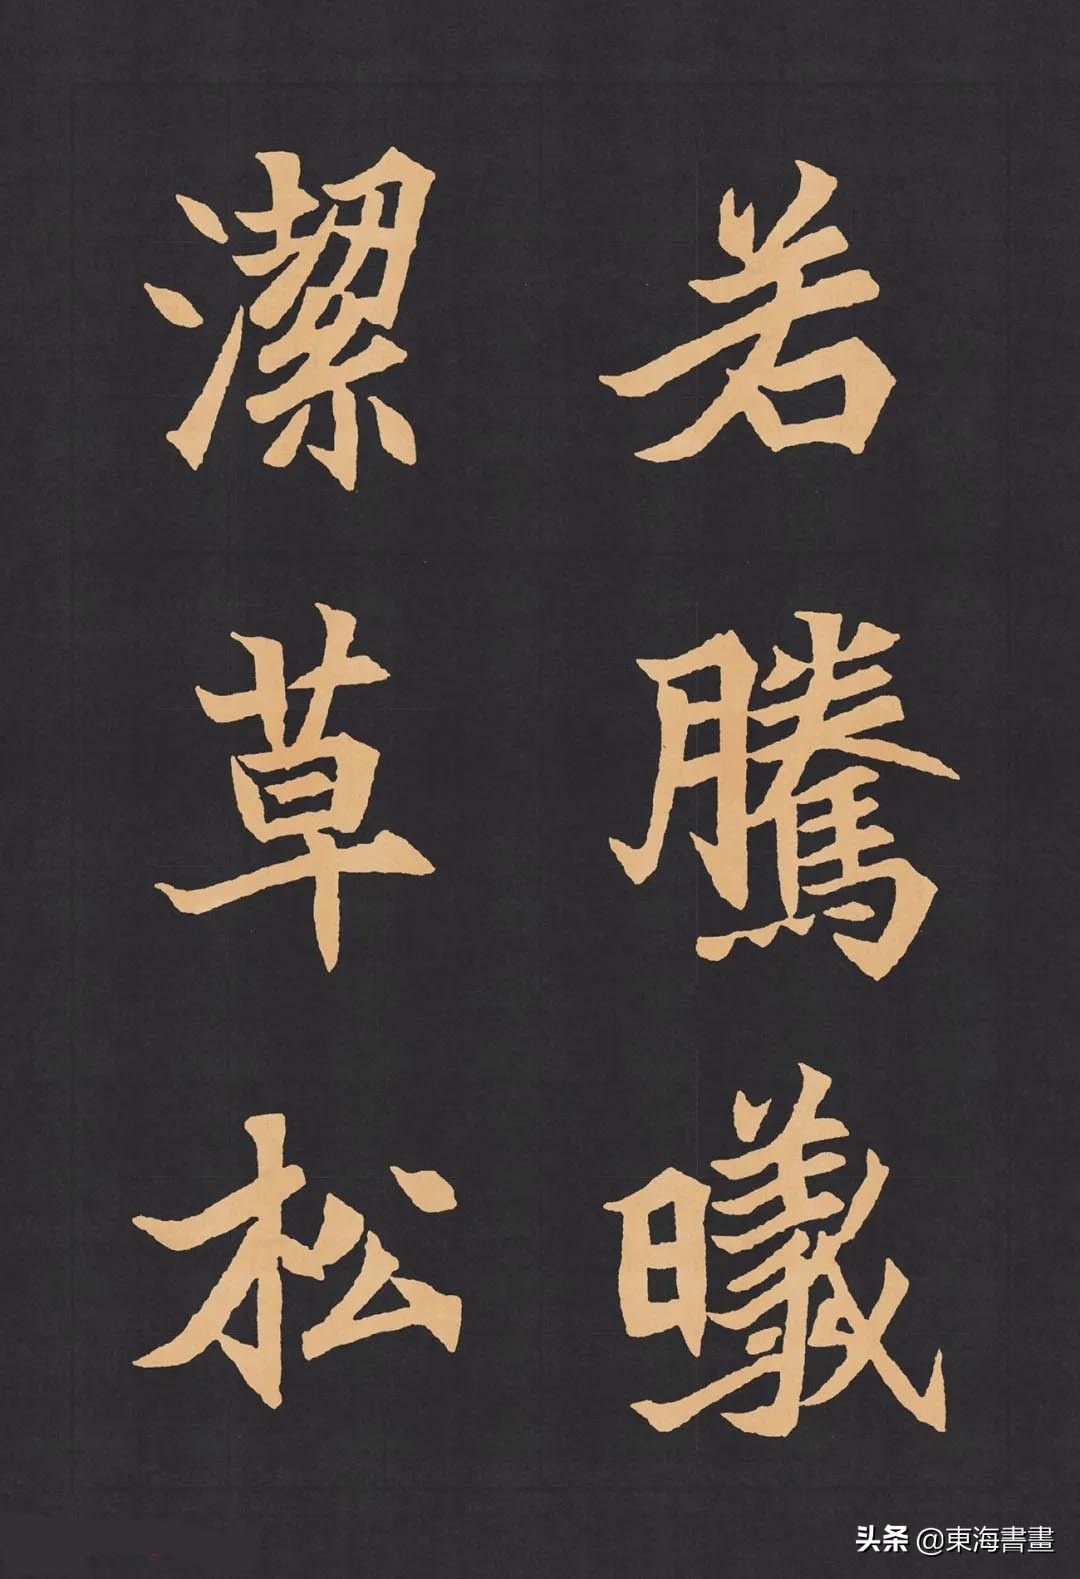 若騰曦
潔草松
头条 @東海書畫